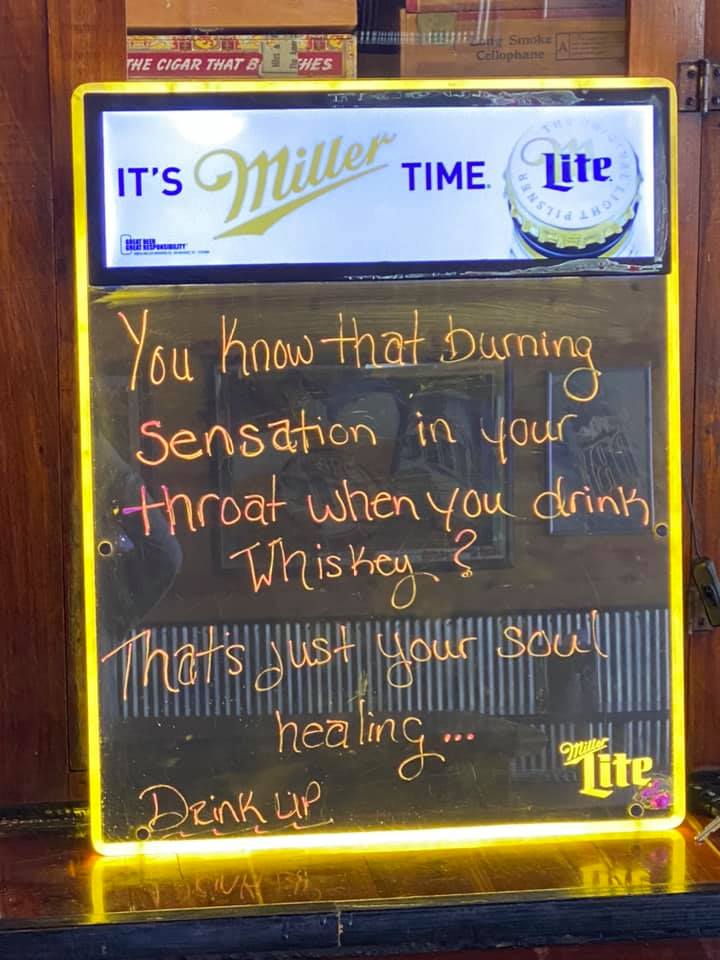 Long Smoke
Cellophane
THE CIGAR THAT B
HES
IT'S Miller TIME.
Lite
THE ORIGINAL LIGHT PILSNER
GREAT BEER
GREAT RESPONSIBILITY
You know that burning
sensation in your
throat when you drink
Whiskey?
That's just your soul
healing...
Drink up
Miller
Lite